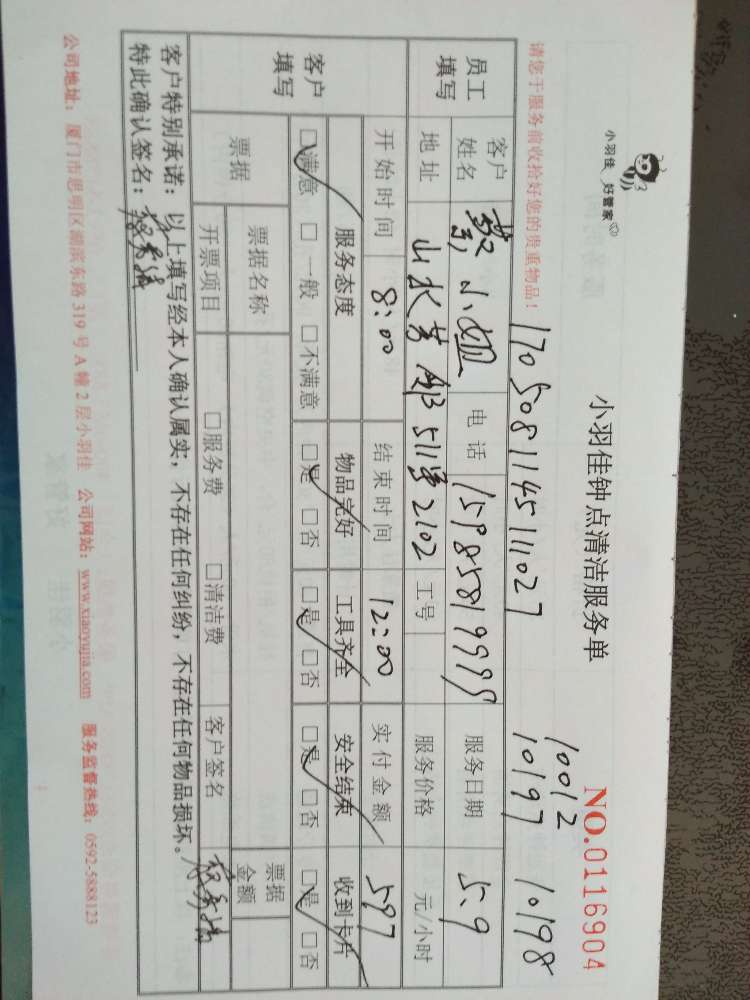 小羽佳 好管家
小羽佳钟点清洁服务单
NO.0116904
10012
1705081145111027 10197 10198
请您于服务前收拾好您的贵重物品！
员工填写
客户姓名 蔡小姐 电话 服务日期 5.9
地址 山水芳邻511室2102 工号 服务价格 元/小时
客户填写
开始时间 8:00 结束时间 12:00 实付金额 597
服务态度 物品完好 工具齐全 安全结束 收到卡片
☑满意 □一般 □不满意 ☑是 □否 ☑是 □否 ☑是 □否 ☑是 □否
票据
票据名称 票据金额
开票项目 □服务费 □清洁费 客户签名
客户特别承诺：以上填写经本人确认属实，不存在任何纠纷，不存在任何物品损坏。
特此确认签名：
公司地址：厦门市思明区湖滨东路 319 号 A 幢 2 层小羽佳 公司网站：www.xiaoyujia.com 服务监督热线：0592-5888123